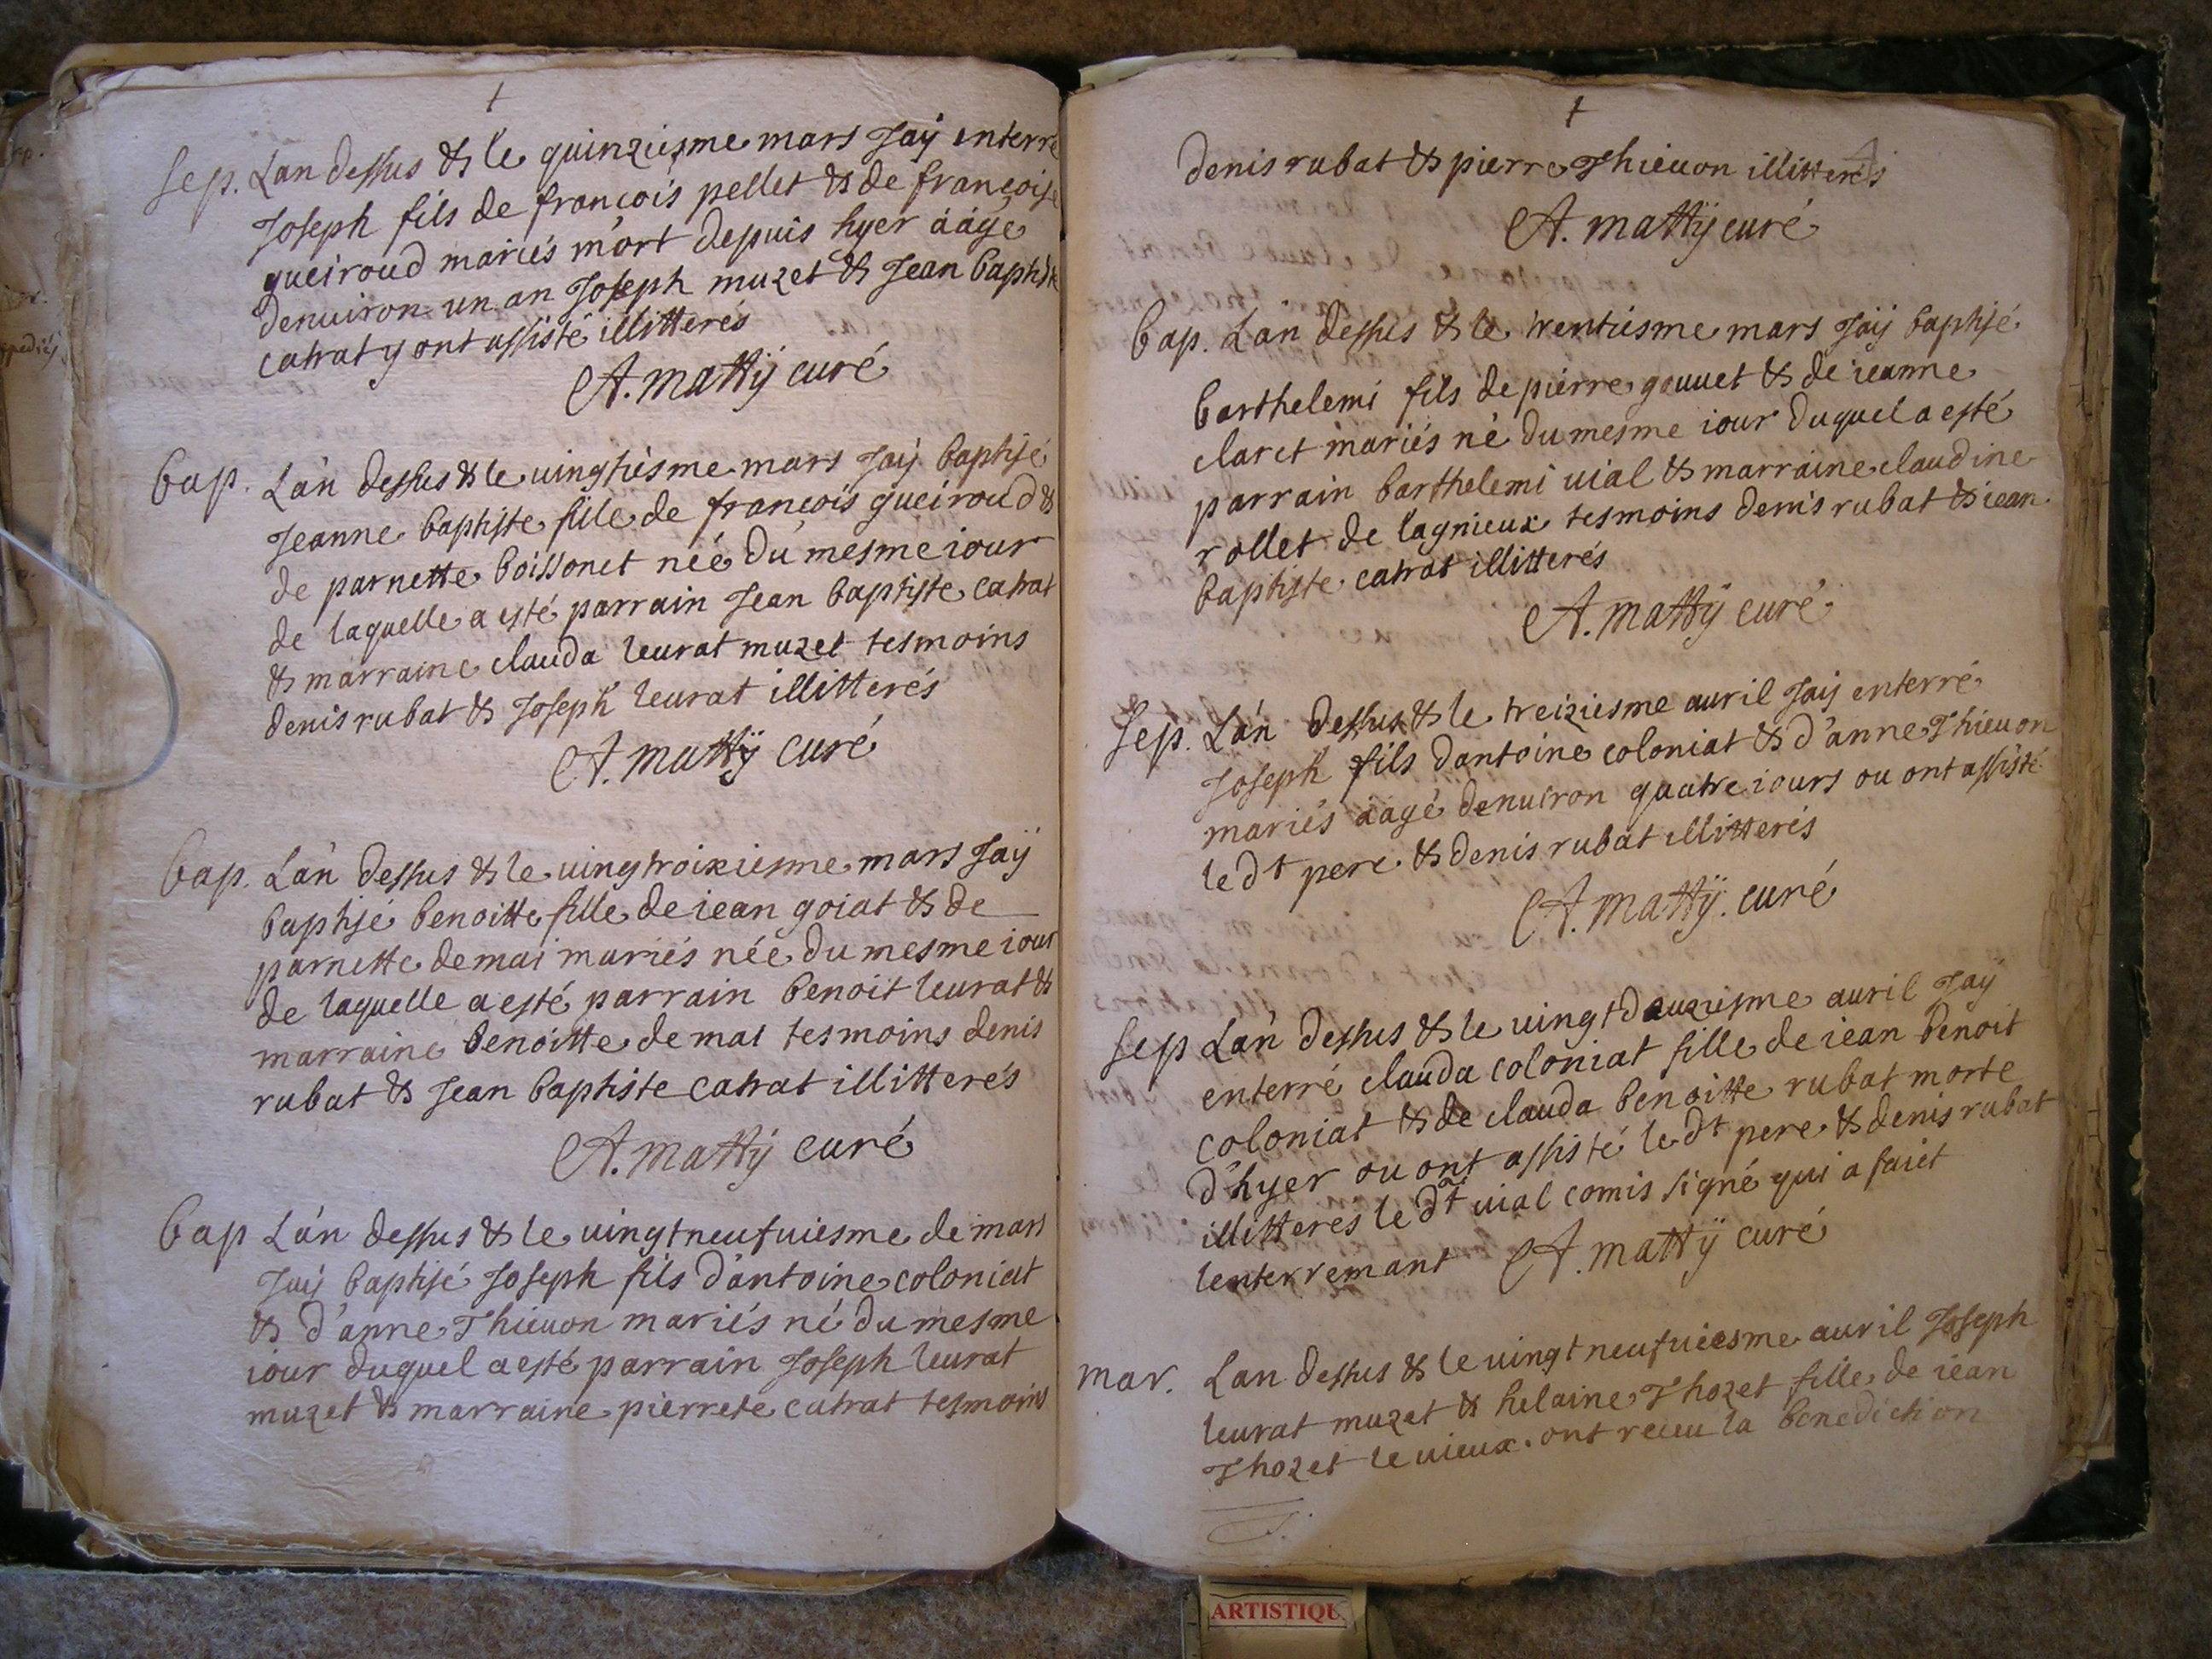 †
Sep. Lan dessus & le quinziesme mars Jaÿ enterré
Joseph fils de francois pellet & de francoise
gueiroud mariés mort depuis hyer aàgé
denuiron un an Joseph muzet & Jean baptiste
catrat y ont assisté illitterés
A. mattÿ curé
bap. Lan dessus & le uingtiesme mars Jaÿ baptisé
Jeanne baptiste fille de francois gueiroud &
de parnette boissonet née du mesme iour
de laquelle a esté parrain Jean baptiste catrat
& marraine clauda leurat muzet tesmoins
denis rubat & Joseph leurat illitterés
A. mattÿ curé
bap. Lan dessus & le uingtroixiesme mars Jaÿ
baptisé benoitte fille de iean goiat & de
parnette demai mariés née du mesme iour
de laquelle a esté parrain benoit leurat &
marraine benoitte demai tesmoins denis
rubat & Jean baptiste catrat illitterés
A. mattÿ curé
bap Lan dessus & le uingtneufuiesme de mars
Jaÿ baptisé Joseph fils dantoine coloniat
& d'anne Thieuon mariés né du mesme
iour duquel a esté parrain Joseph leurat
muzet & marraine pierrete catrat tesmoins
†
denis rubat & pierre Thieuon illitterés
A. mattÿ curé
bap. Lan dessus & le trentiesme mars Jaÿ baptisé
barthelemi fils de pierre gouuet & de ieanne
claret mariés né du mesme iour duquel a esté
parrain barthelemi uial & marraine claudine
rollet de lagnieux tesmoins denis rubat & iean
baptiste catrat illitterés
A. mattÿ curé
Sep. Lan dessus & le treiziesme auril Jaÿ enterré
Joseph fils dantoine coloniat & d'anne Thieuon
mariés aàgé denuiron quatre iours ou ont assisté
le dt pere & denis rubat illitterés
A. mattÿ curé
Sep Lan dessus & le uingtdeuziesme auril Jaÿ
enterré clauda coloniat fille de iean benoit
coloniat & de clauda benoitte rubat morte
d'hyer ou ont assisté le dt pere & denis rubat
illitteres le dt uial comis signé qui a faict
lenterremant A. mattÿ curé
mar. Lan dessus & le uingtneufuiesme auril Joseph
leurat muzet & helaine Thozet fille de iean
Thozet le uieux ont receu la benediction
ARTISTIQU